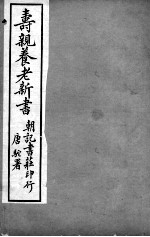 壽親養老新書
朝記書莊印行
唐駝署